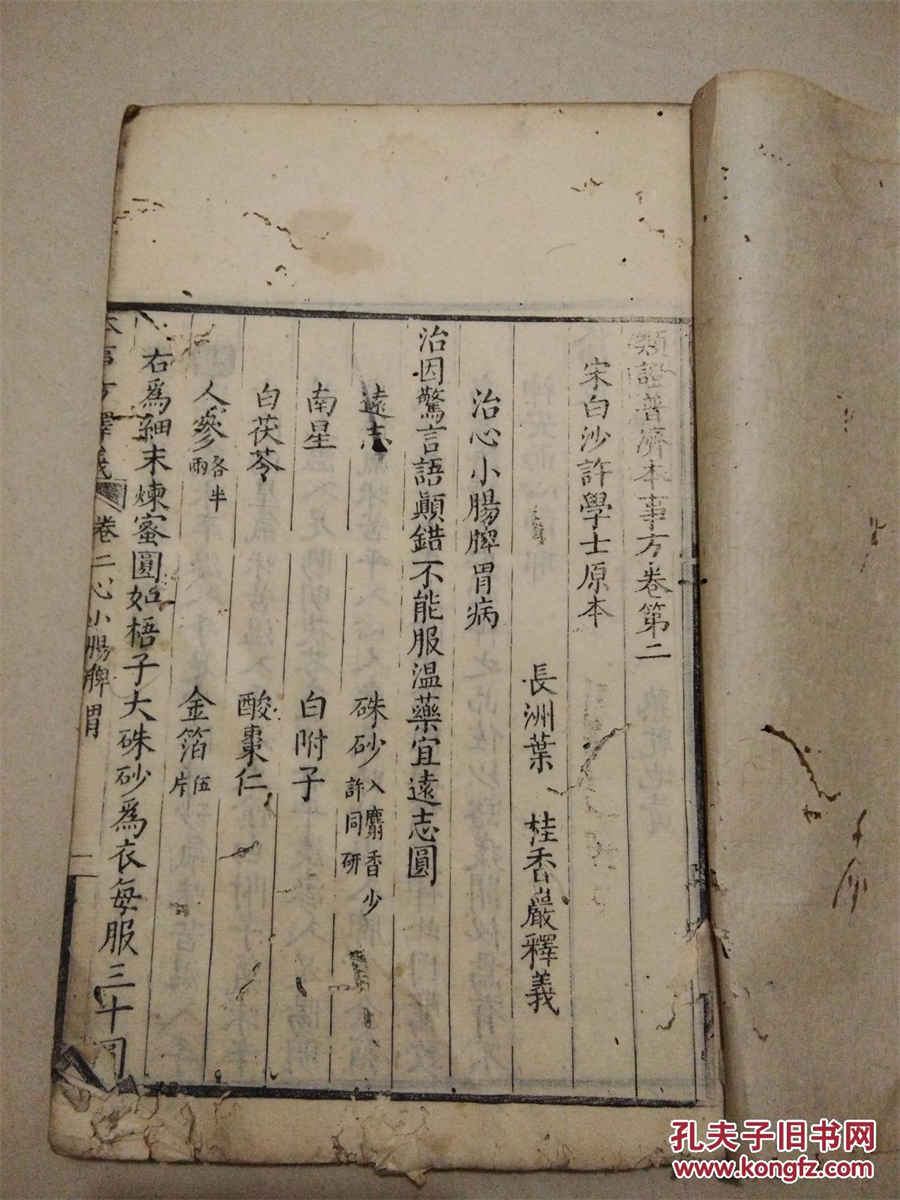 類證普濟本事方卷第二
宋白沙許學士原本
長洲葉 桂香巖釋義
治心小腸脾胃病
治因驚言語顛錯不能服溫藥宜遠志圓
遠志 硃砂入麝香少許同研
南星 白附子
白茯苓 酸棗仁
人參各半兩 金箔伍片
右為細末煉蜜圓如梧子大硃砂為衣每服三十圓
本事方釋義 卷二心小腸脾胃 二
孔夫子旧书网
www.kongfz.com